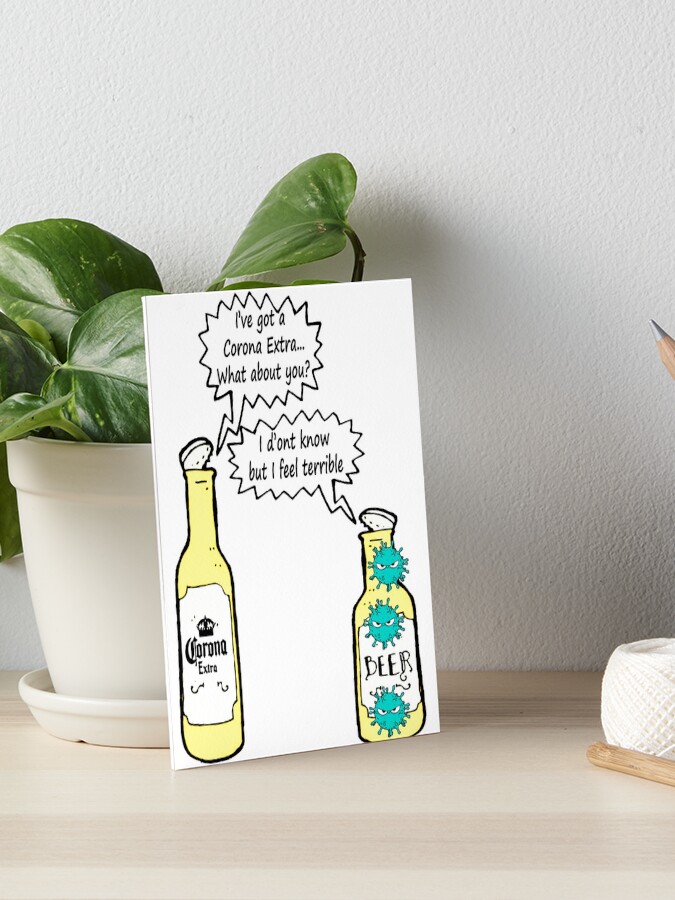 I've got a
Corona Extra...
What about you?
I d'ont know
but I feel terrible
Corona
Extra
BEER